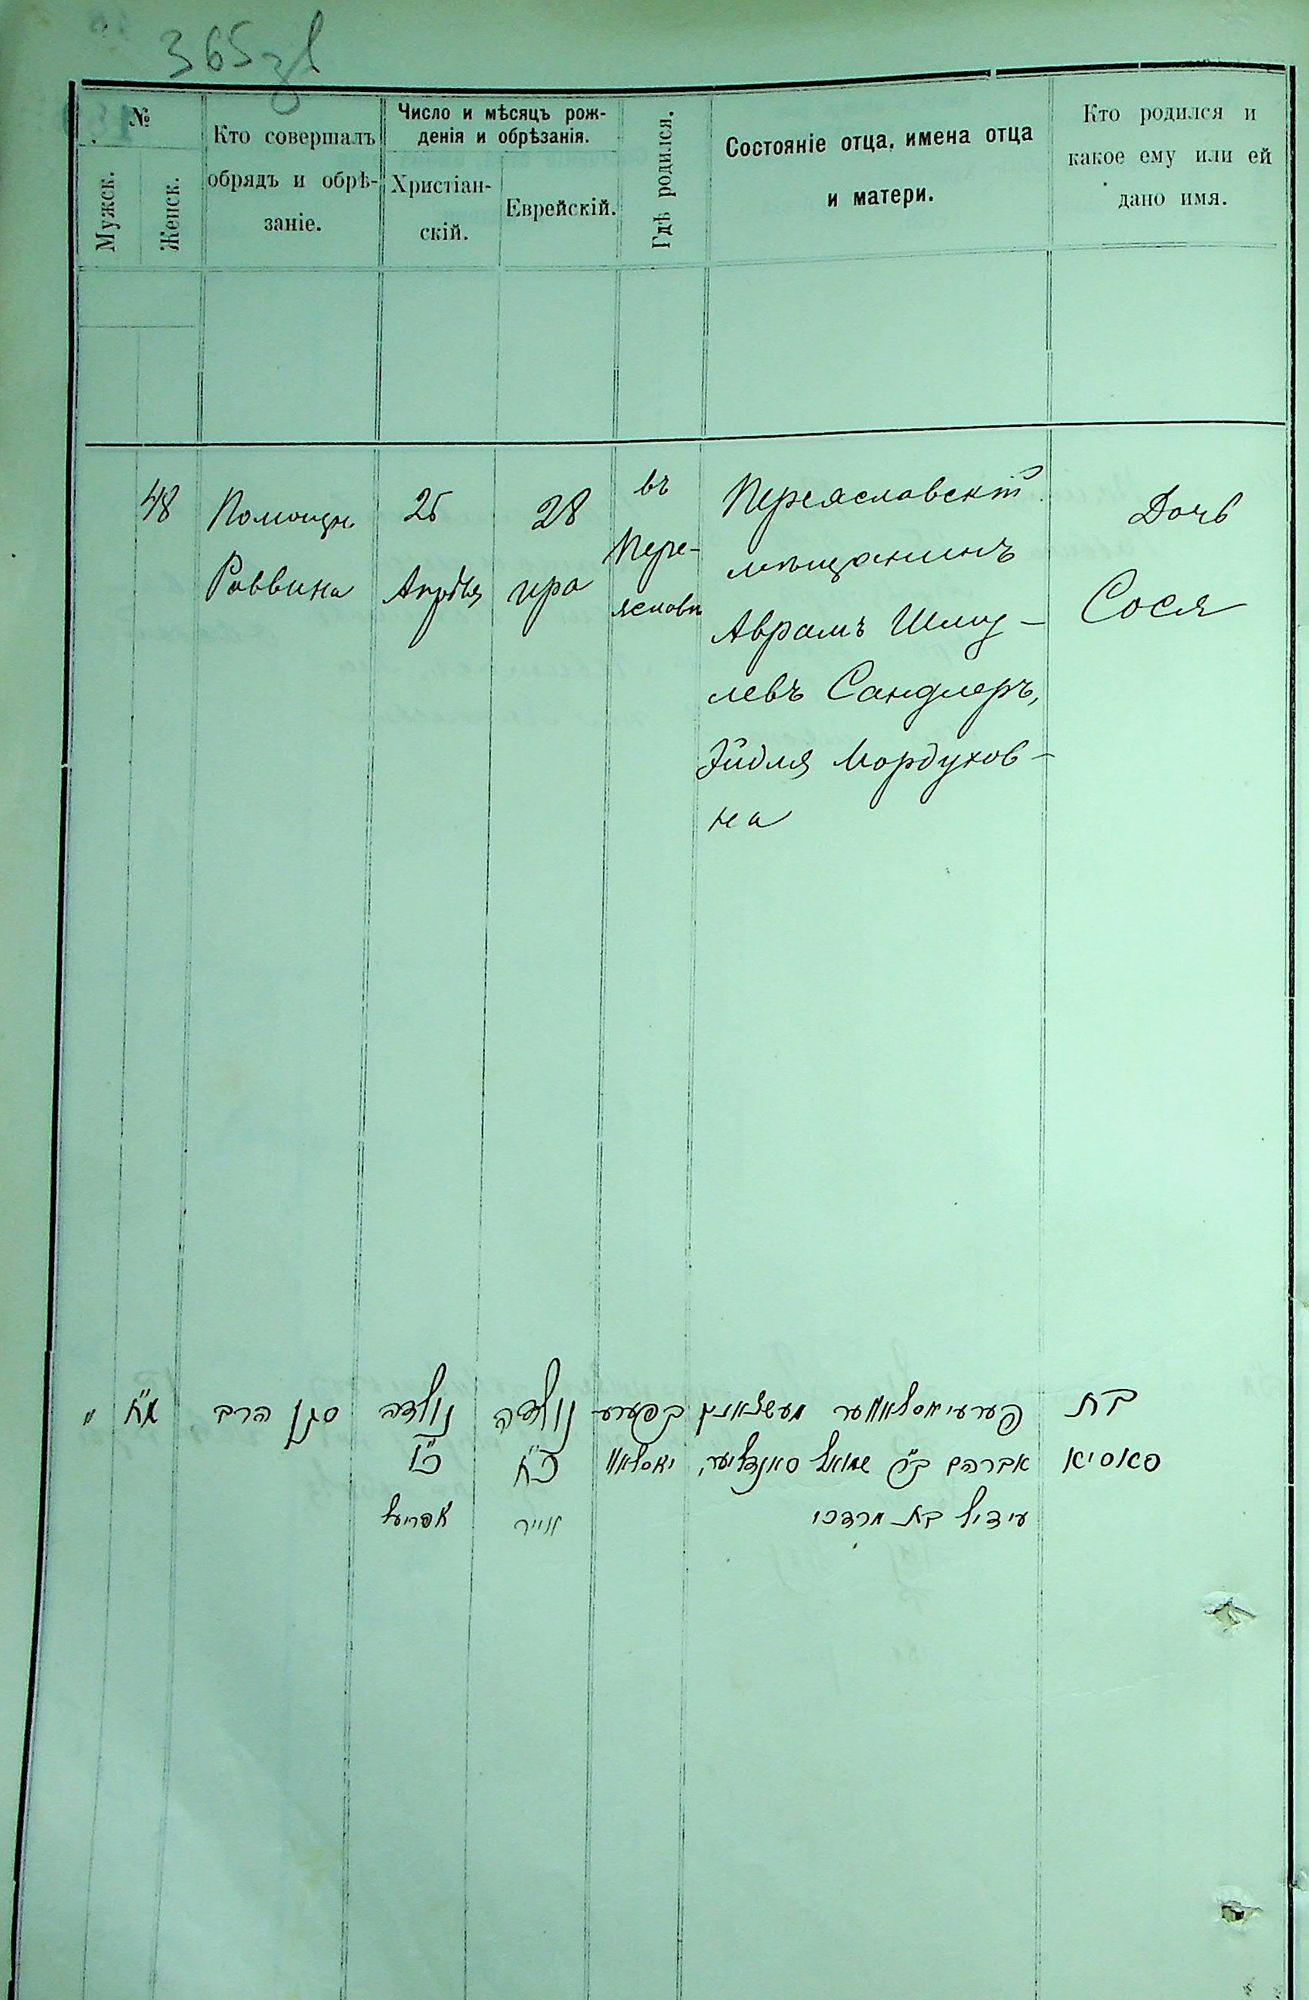 365
№
Мужск.
Женск.
Кто совершалъ
обрядъ и обрѣ-
заніе.
Число и мѣсяцъ рож-
денія и обрѣзанія.
Христіан-
скій.
Еврейскій.
Гдѣ родился.
Состояніе отца, имена отца
и матери.
Кто родился и
какое ему или ей
дано имя.
48
Помощн.
Раввина
25
Апрѣля
28
ира
въ
Пере-
яславѣ
Переяславскій
мѣщанинъ
Аврамъ Шму-
левъ Сандлеръ,
Эйдля Мордухов-
на
Дочь
Сося
מ"ח
סגן הרב
נולדה
אפריעל
נולדה
כ"ח
אייר
בפערע
יאסלאוו
פערעיאסלאווער מעשצאנין
אברהם ב"ר שמואל סאנדליער,
עידיל בת מרדכי
בת
סאסיא